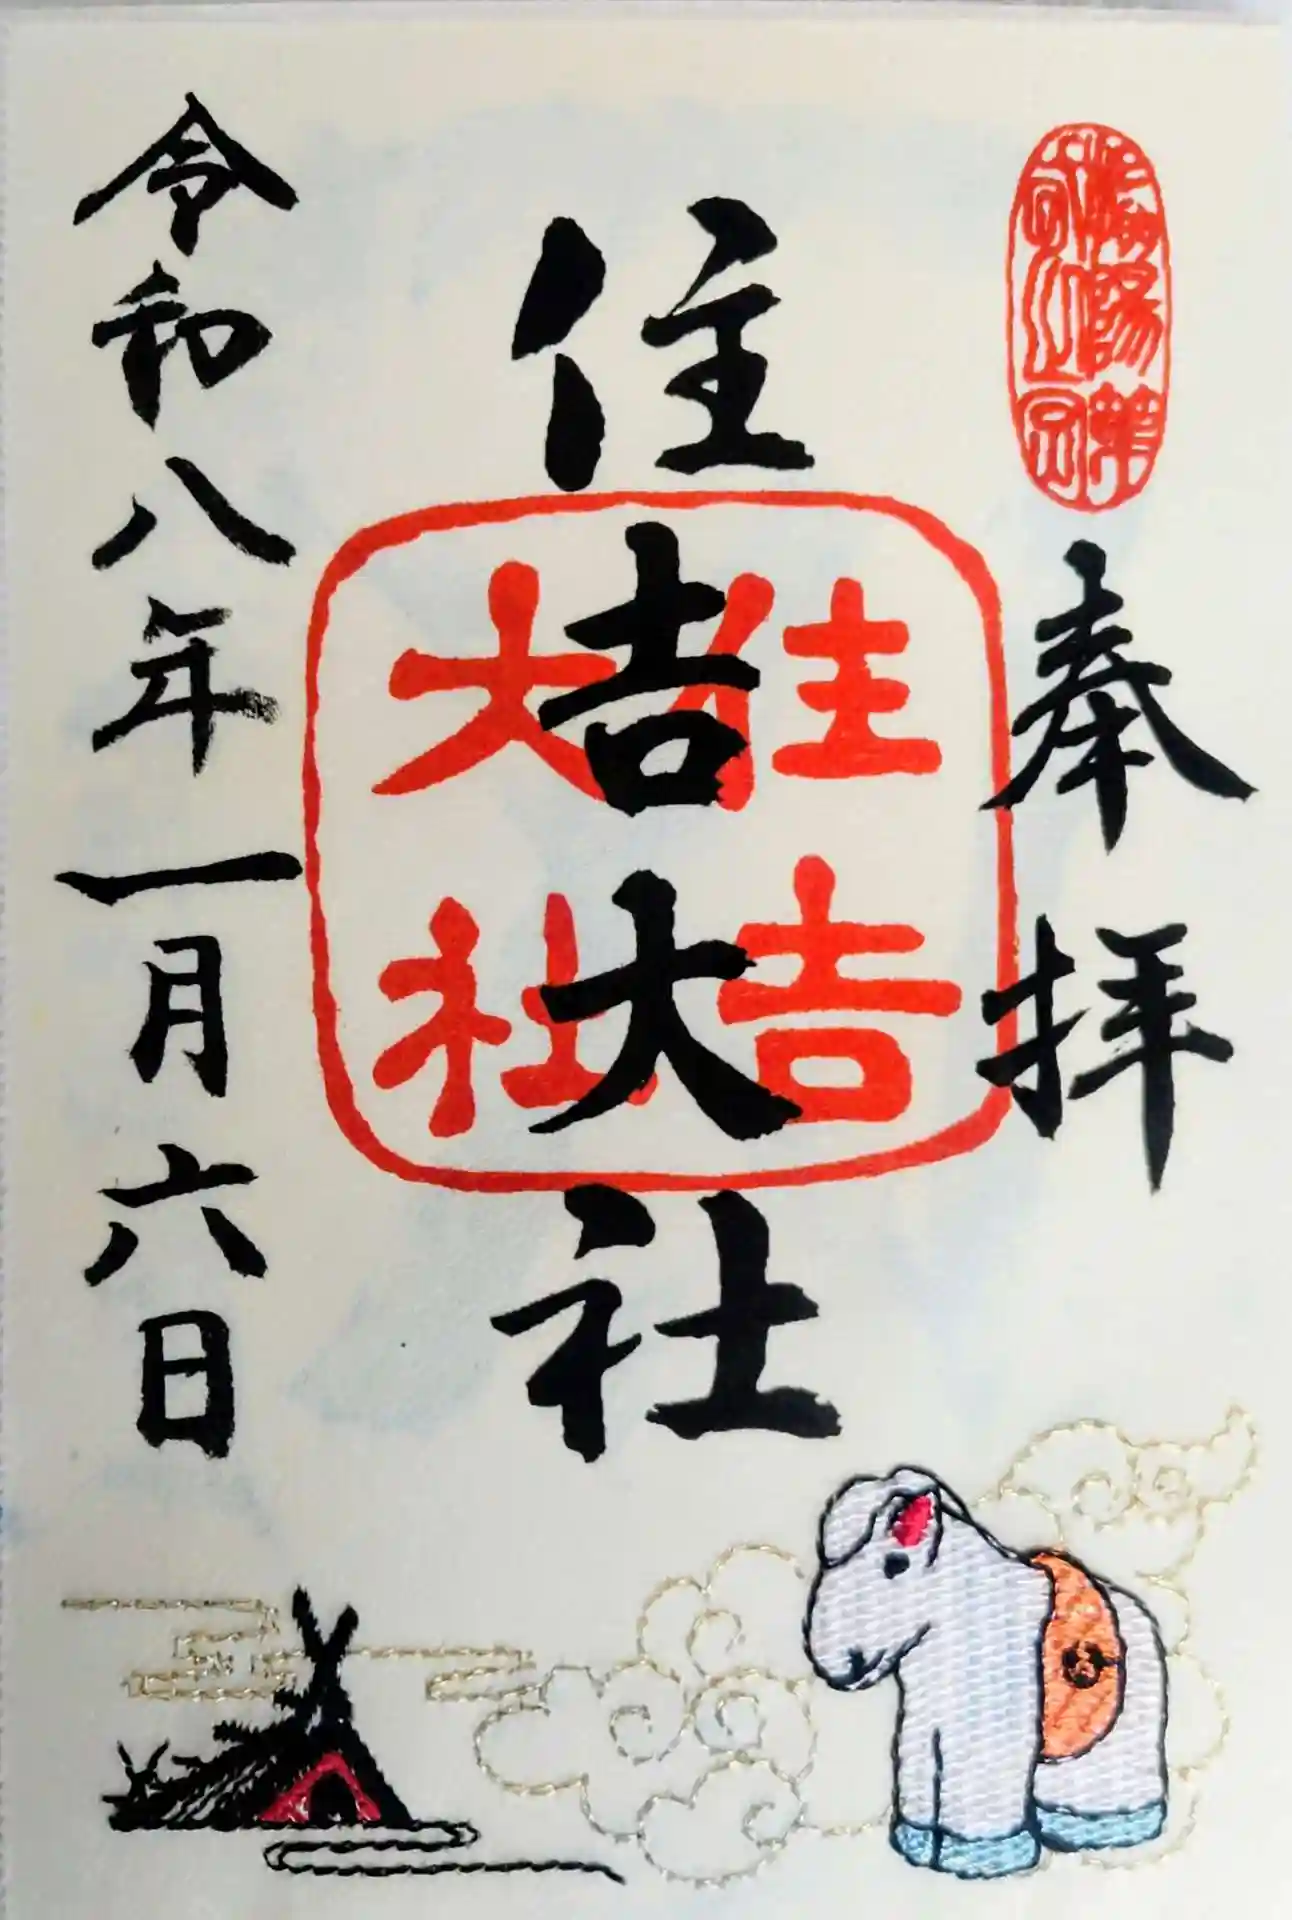 奉拝
住吉大社
住吉大社
令和八年一月六日